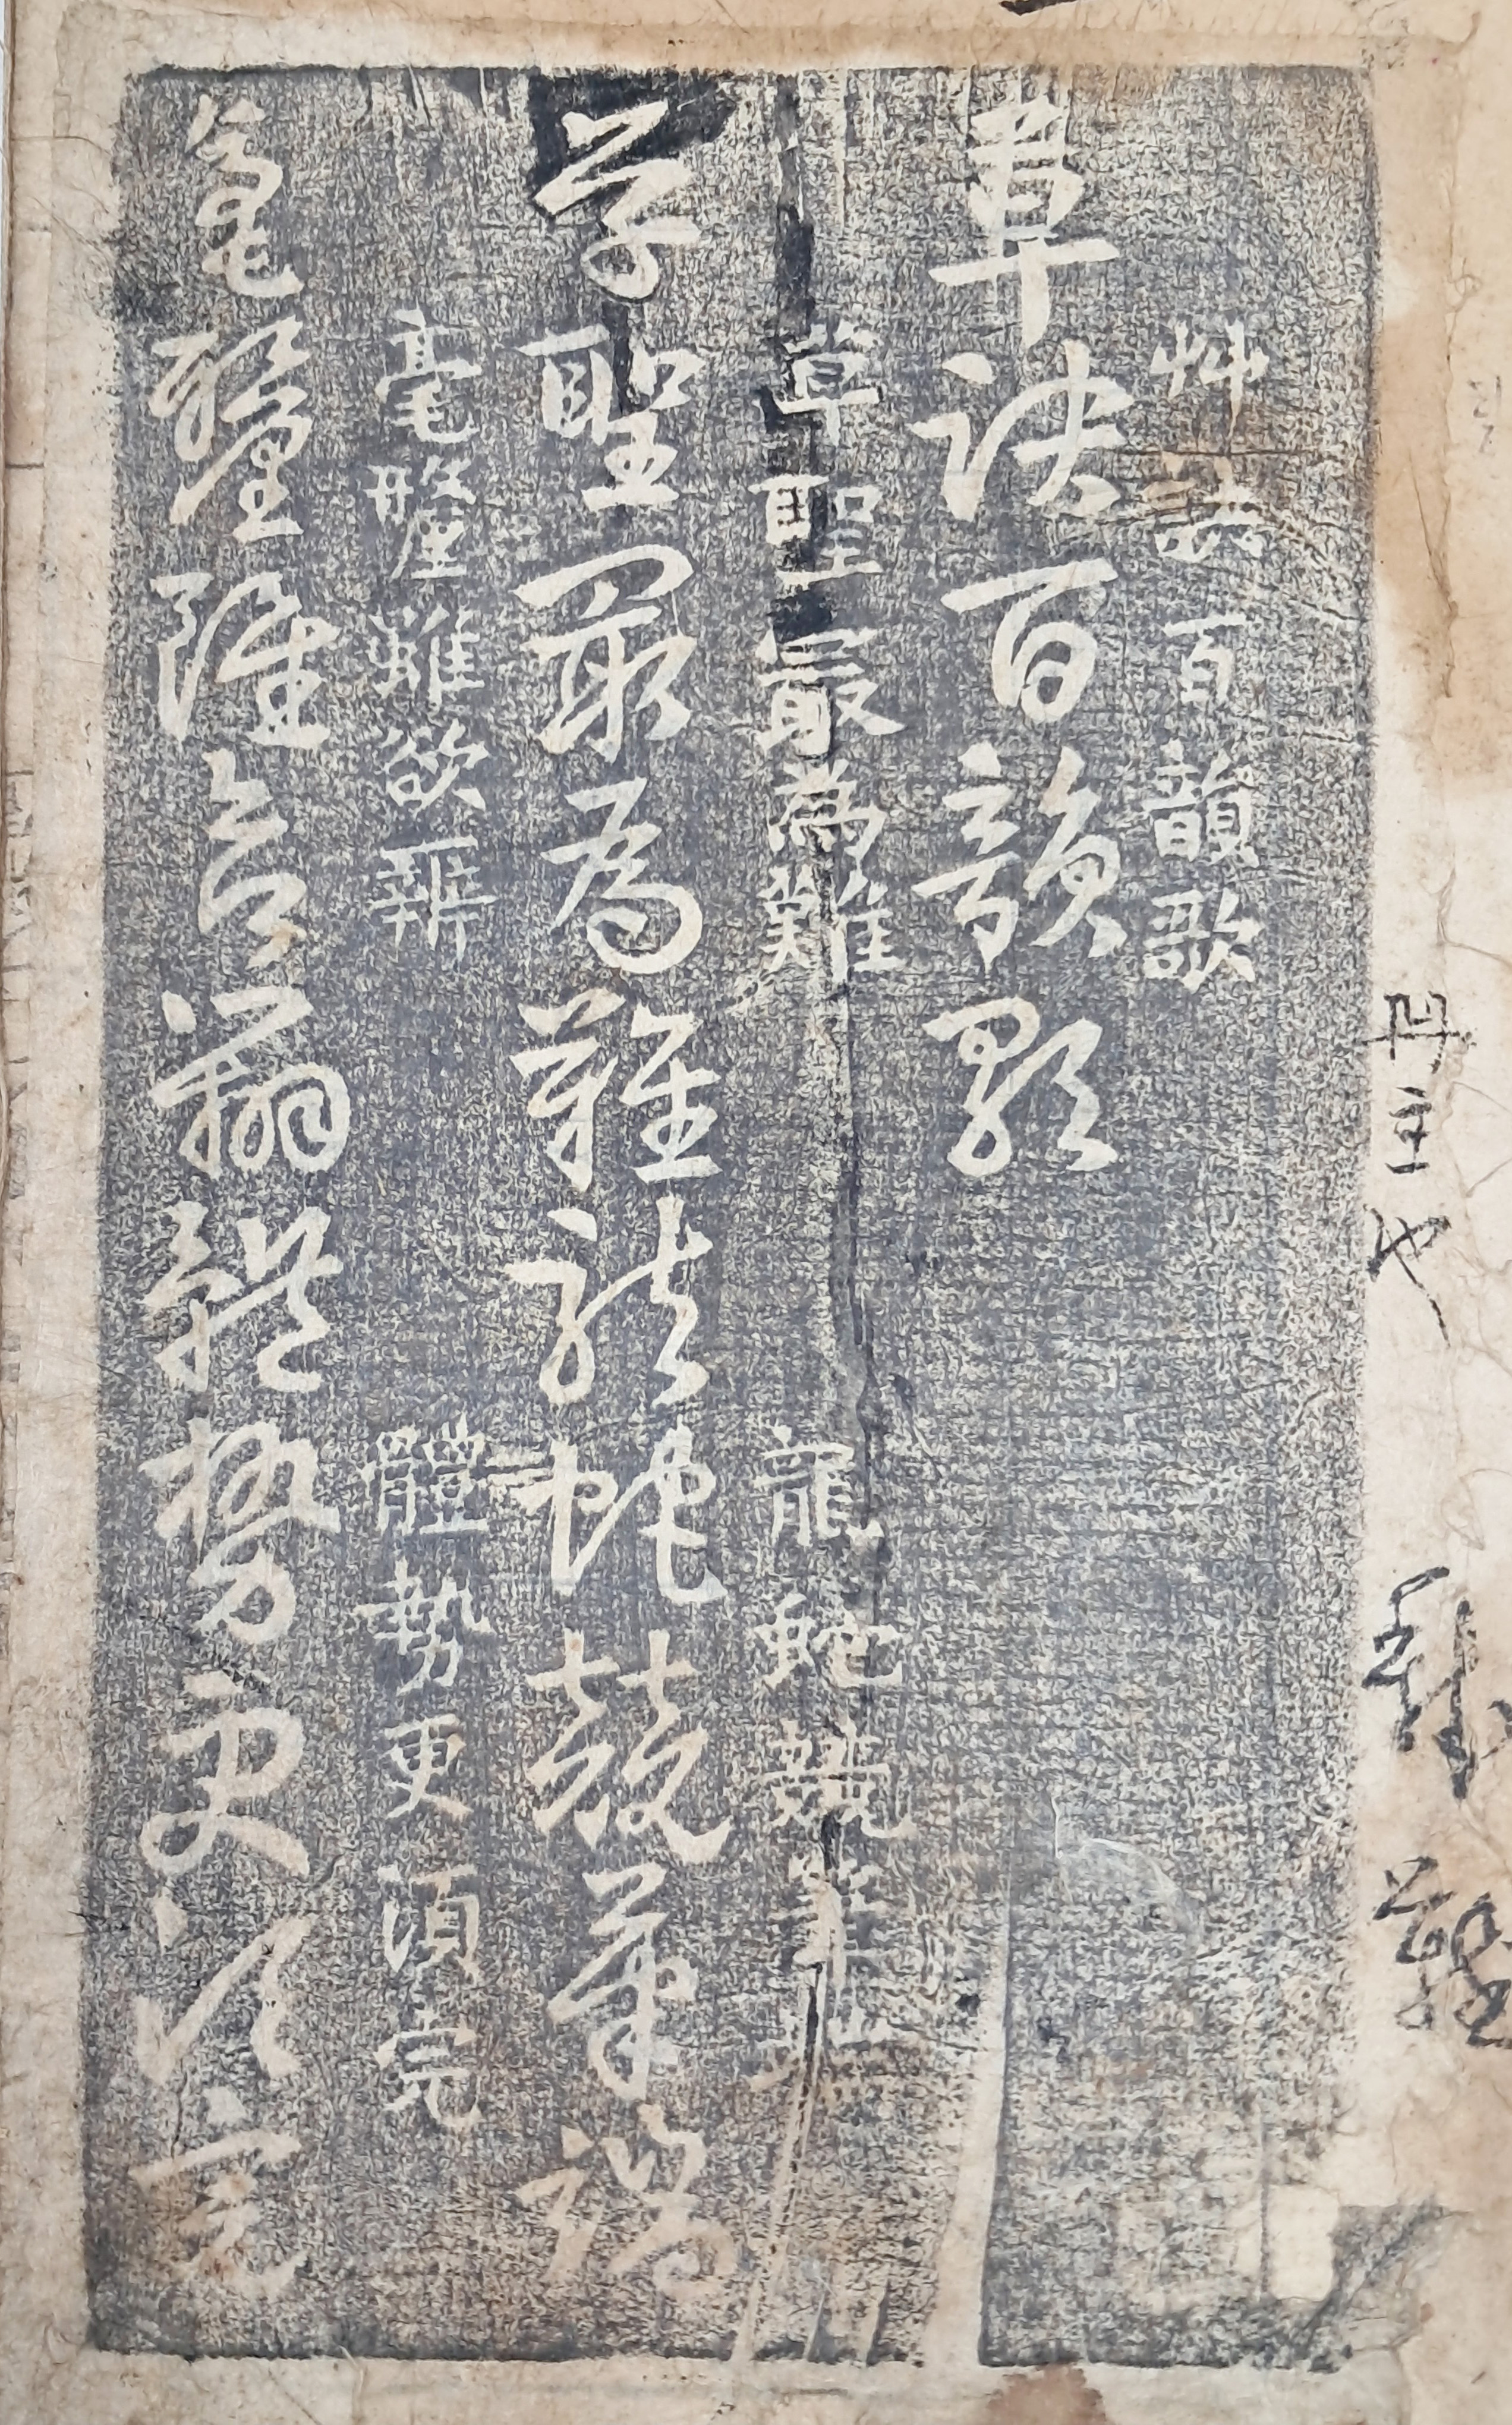 冊主也
艸訣百韻歌
草訣百韻歌
草聖最為難 龍蛇競筆
草聖最為難龍蛇競筆端
毫釐雖欲辨 體勢更須完
毫釐雖欲辨體勢更須完